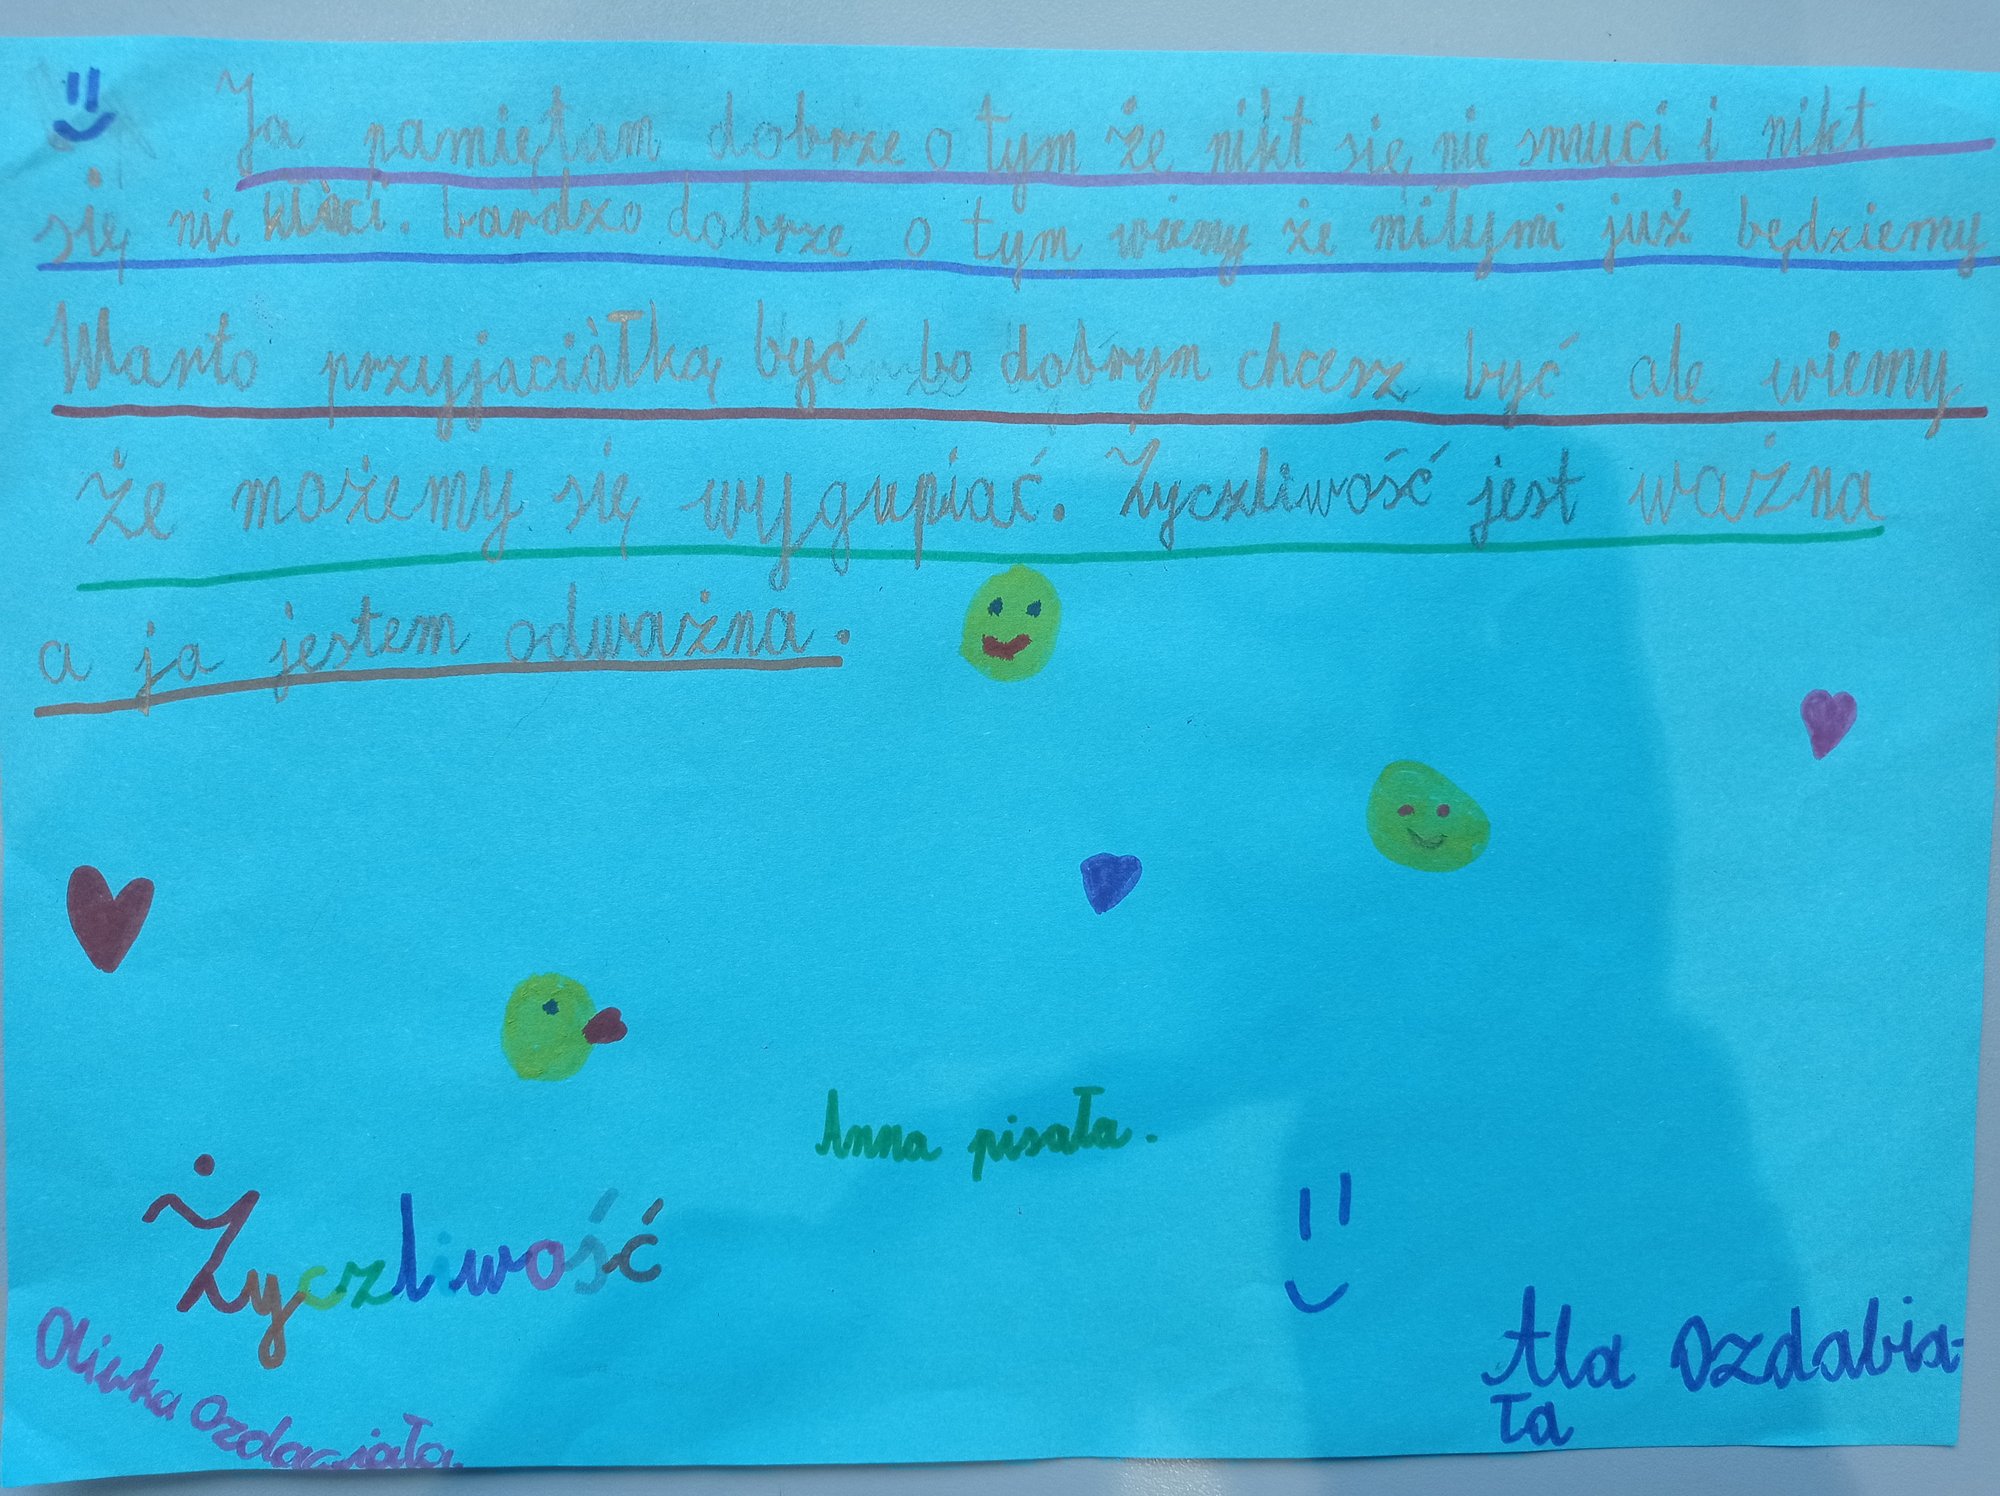 Ja pamiętam dobrze o tym że nikt się nie smuci i nikt
się nie kłóci. bardzo dobrze o tym wiemy że miłymi już będziemy
Warto przyjaciółką być bo dobrym chcesz być ale wiemy
że możemy się wygupiać. Życzliwość jest ważna
a ja jestem odważna.
Anna pisała.
Życzliwość
Oliwka
Ala Ozdabia-
ła